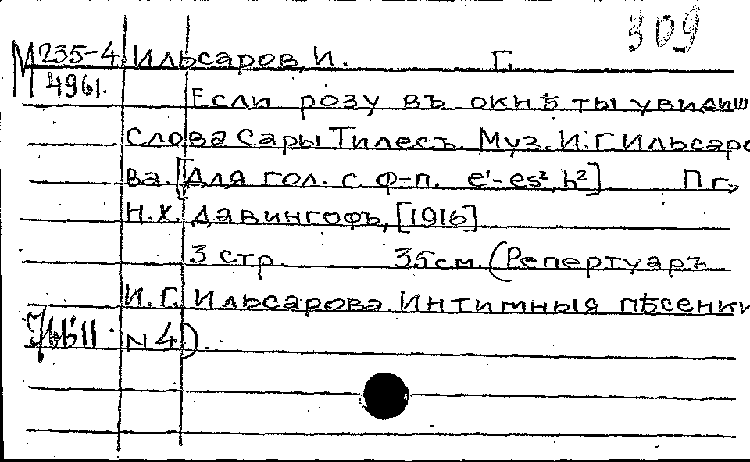 309
М 235-4 Ильсаров, И. Г.
4961.
Если розу въ окнѣ ты увидиш
Слова Сары Тилесъ. Муз. И. Г. Ильсаро
ва. [Для гол. с ф-п. e¹-es², h²] Пг.,
Н. Х. Давингофъ, [1916]
3 стр. 35 см. (Репертуаръ
И. Г. Ильсарова. Интимныя пѣсенки
N 4).